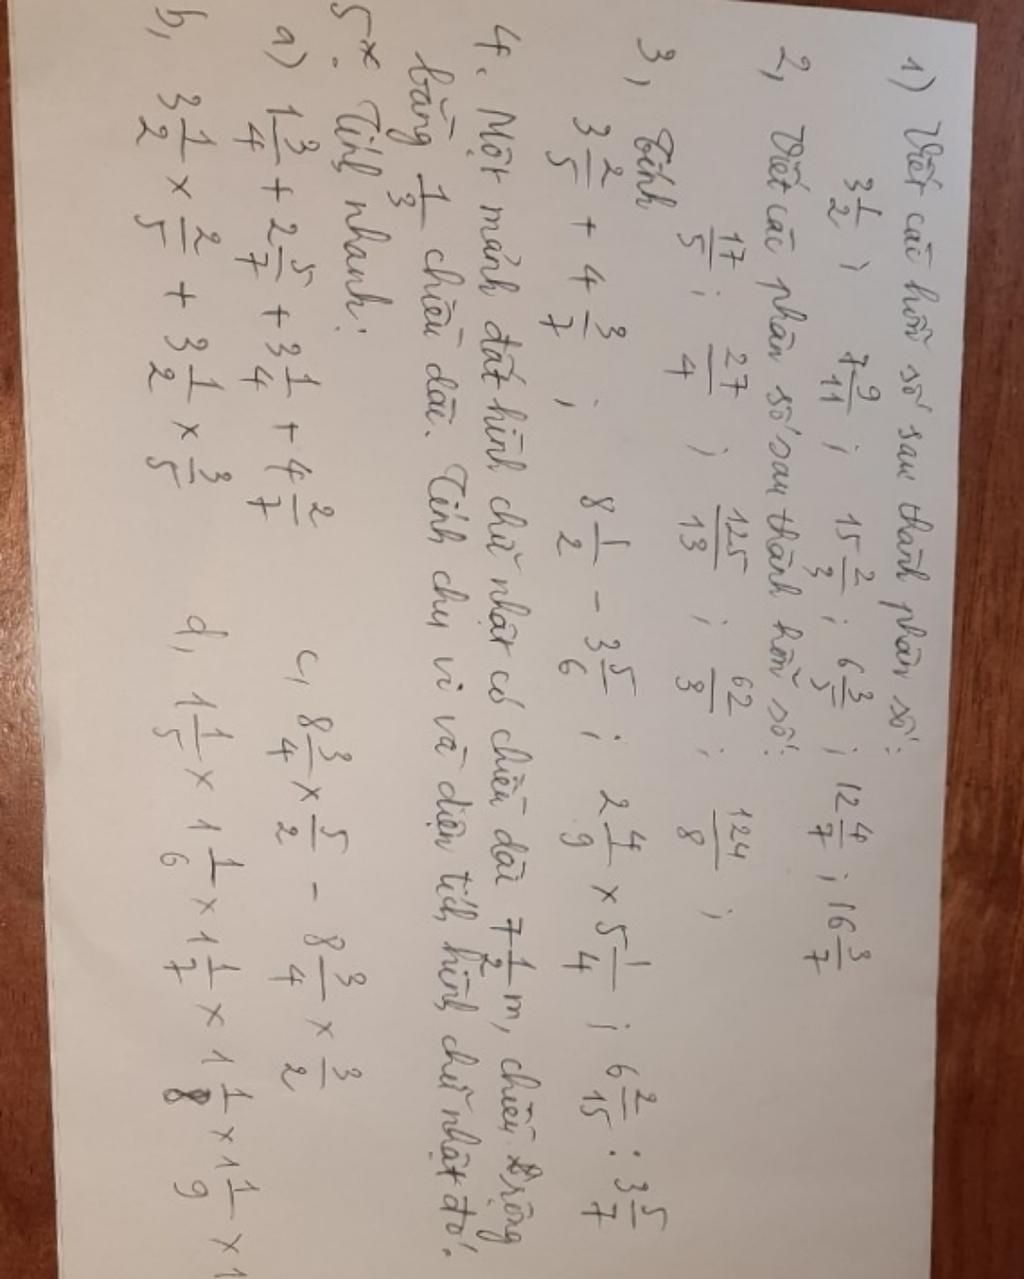 1) Viết các hỗn số sau thành phân số:
3 1/2 ; 7 9/11 ; 15 2/3 ; 6 3/5 ; 12 4/7 ; 16 3/7
2, Viết các phân số sau thành hỗn số:
17/5 ; 27/4 ; 125/13 ; 62/3 ; 124/8 ;
3, Tính
3 2/5 + 4 3/7 ; 8 1/2 - 3 5/6 ; 2 4/9 × 5 1/4 ; 6 2/15 : 3 5/7
4. Một mảnh đất hình chữ nhật có chiều dài 7 1/2 m, chiều rộng
bằng 1/3 chiều dài. Tính chu vi và diện tích hình chữ nhật đó.
5*. Tính nhanh:
a) 1 3/4 + 2 5/7 + 3 1/4 + 4 2/7 c, 8 3/4 × 5/2 - 8 3/4 × 3/2
b, 3 1/2 × 2/5 + 3 1/2 × 3/5 d, 1 1/5 × 1 1/6 × 1 1/7 × 1 1/8 × 1 1/9 × 1